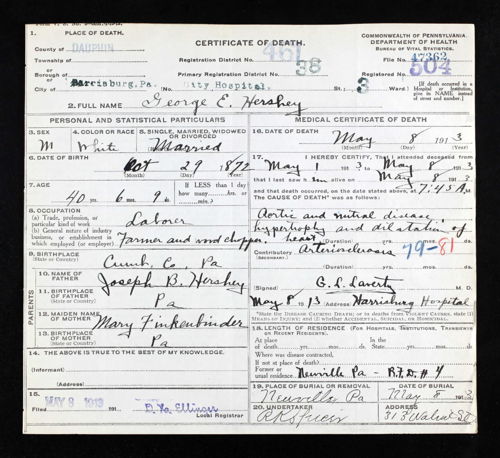 1. PLACE OF DEATH.
County of DAUPHIN
Township of
or
Borough of
or
City of Harrisburg, Pa. City Hospital.
CERTIFICATE OF DEATH.
Registration District No. 461
Primary Registration District No. 38
St.; 3 Ward)
COMMONWEALTH OF PENNSYLVANIA
DEPARTMENT OF HEALTH
BUREAU OF VITAL STATISTICS.
File No. 47362
Registered No. 504
[If death occurred in a Hospital or Institution, give its NAME instead of street and number.]
2. FULL NAME George E. Hershey
PERSONAL AND STATISTICAL PARTICULARS
3. SEX M
4. COLOR OR RACE White
5. SINGLE, MARRIED, WIDOWED OR DIVORCED Married
6. DATE OF BIRTH Oct 29 1872
(Month) (Day) (Year)
7. AGE 40 yrs. 6 mos. 9 ds.
If LESS than 1 day how many hrs. or min.?
8. OCCUPATION
(a) Trade, profession, or particular kind of work Laborer
(b) General nature of industry, business, or establishment in which employed (or employer) Farmer and wood chopper
9. BIRTHPLACE Cumb. Co. Pa
PARENTS
10. NAME OF FATHER Joseph B. Hershey
11. BIRTHPLACE OF FATHER Pa
12. MAIDEN NAME OF MOTHER Mary Finkenbinder
13. BIRTHPLACE OF MOTHER Pa
14. THE ABOVE IS TRUE TO THE BEST OF MY KNOWLEDGE.
(Informant)
(Address)
15.
Filed MAY 8 1913 191
Local Registrar
MEDICAL CERTIFICATE OF DEATH
16. DATE OF DEATH May 8 1913
(Month) (Day) (Year)
17. I HEREBY CERTIFY, That I attended deceased
from May 1 1913 to May 8 1913
that I last saw him alive on May 8 1913
and that death occurred, on the date stated above, at 7:45 A M.
The CAUSE OF DEATH* was as follows:
Aortic and mitral disease,
hypertrophy and dilatation of
heart (Duration) yrs. mos. ds.
Contributory Arteriosclerosis 79-81
(Secondary)
(Duration) yrs. mos. ds.
(Signed) G. L. Laverty M. D.
May 8 1913 (Address) Harrisburg Hospital
*State the DISEASE CAUSING DEATH; or in deaths from VIOLENT CAUSES, state (1) MEANS OF INJURY; and (2) whether ACCIDENTAL, SUICIDAL, or HOMICIDAL.
18. LENGTH OF RESIDENCE (FOR HOSPITALS, INSTITUTIONS, TRANSIENTS OR RECENT RESIDENTS.
At place of death yrs. mos. ds. In the State yrs. mos. ds.
Where was disease contracted,
if not at place of death?
Former or usual residence Newville Pa - R.F.D. #4
19. PLACE OF BURIAL OR REMOVAL Newville Pa
DATE OF BURIAL May 8 1913
20. UNDERTAKER
ADDRESS 313 Walnut St